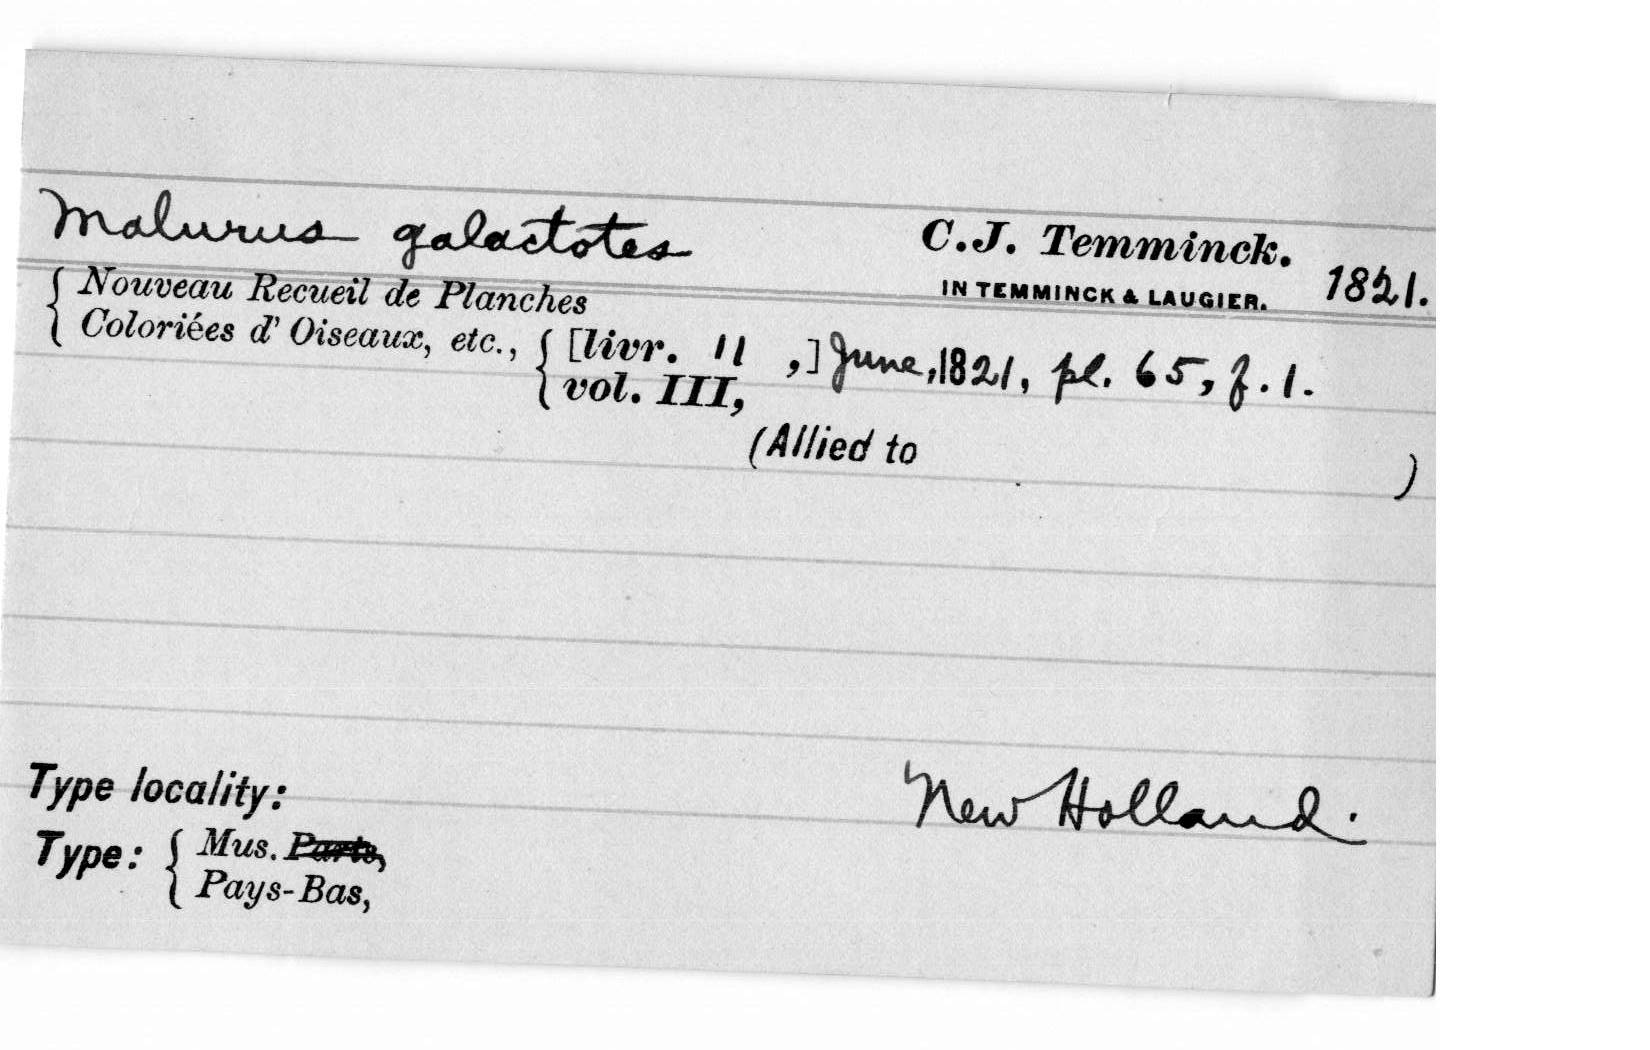 Malurus galactotes C.J. Temminck.
IN TEMMINCK & LAUGIER. 1821.
Nouveau Recueil de Planches
Coloriées d' Oiseaux, etc., [livr. 11 ,] June, 1821, pl. 65, f. 1.
vol. III,
(Allied to )
Type locality: New Holland.
Type: Mus. Paris,
Pays-Bas,